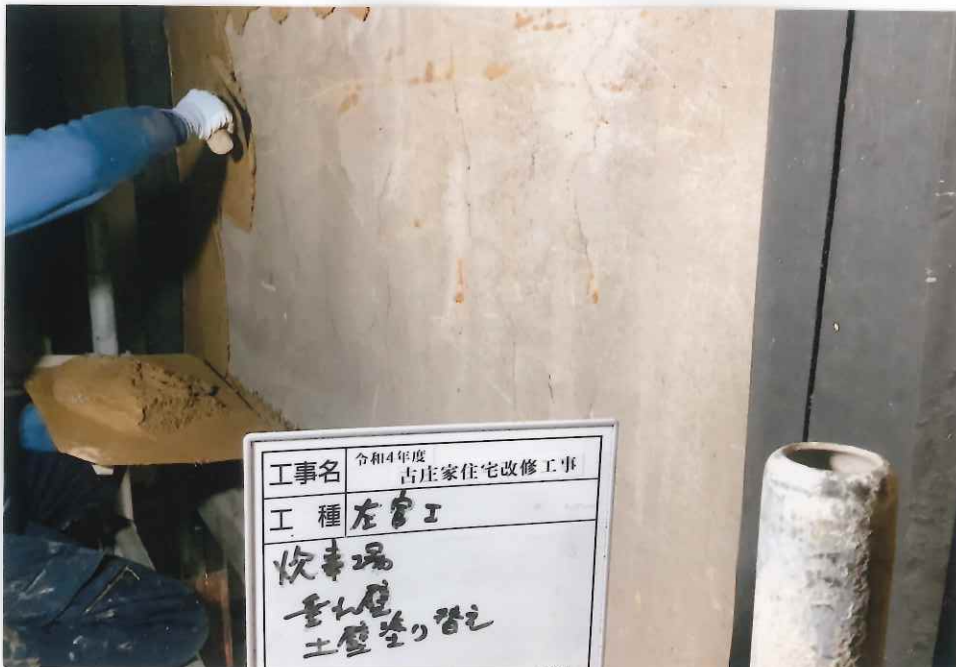 工事名 令和4年度
古庄家住宅改修工事
工種 左官工
炊事場
垂れ壁
土壁塗り替え